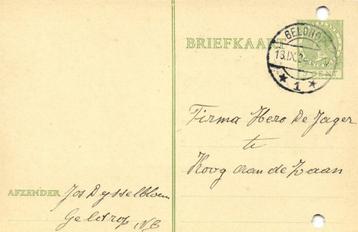 BRIEFKAA
CENT
1
Firma Hero De Jager
te
Koog aan de Zaan
AFZENDER
Jos Dysselbloem
Geldrop N.B